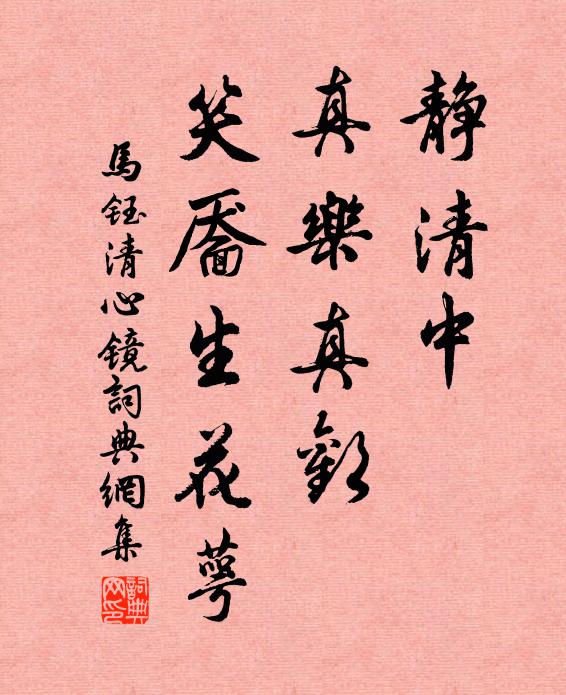 静清中
真樂真歡
笑靨生花萼
馬鈺清心鏡詞典網集
詞典网印